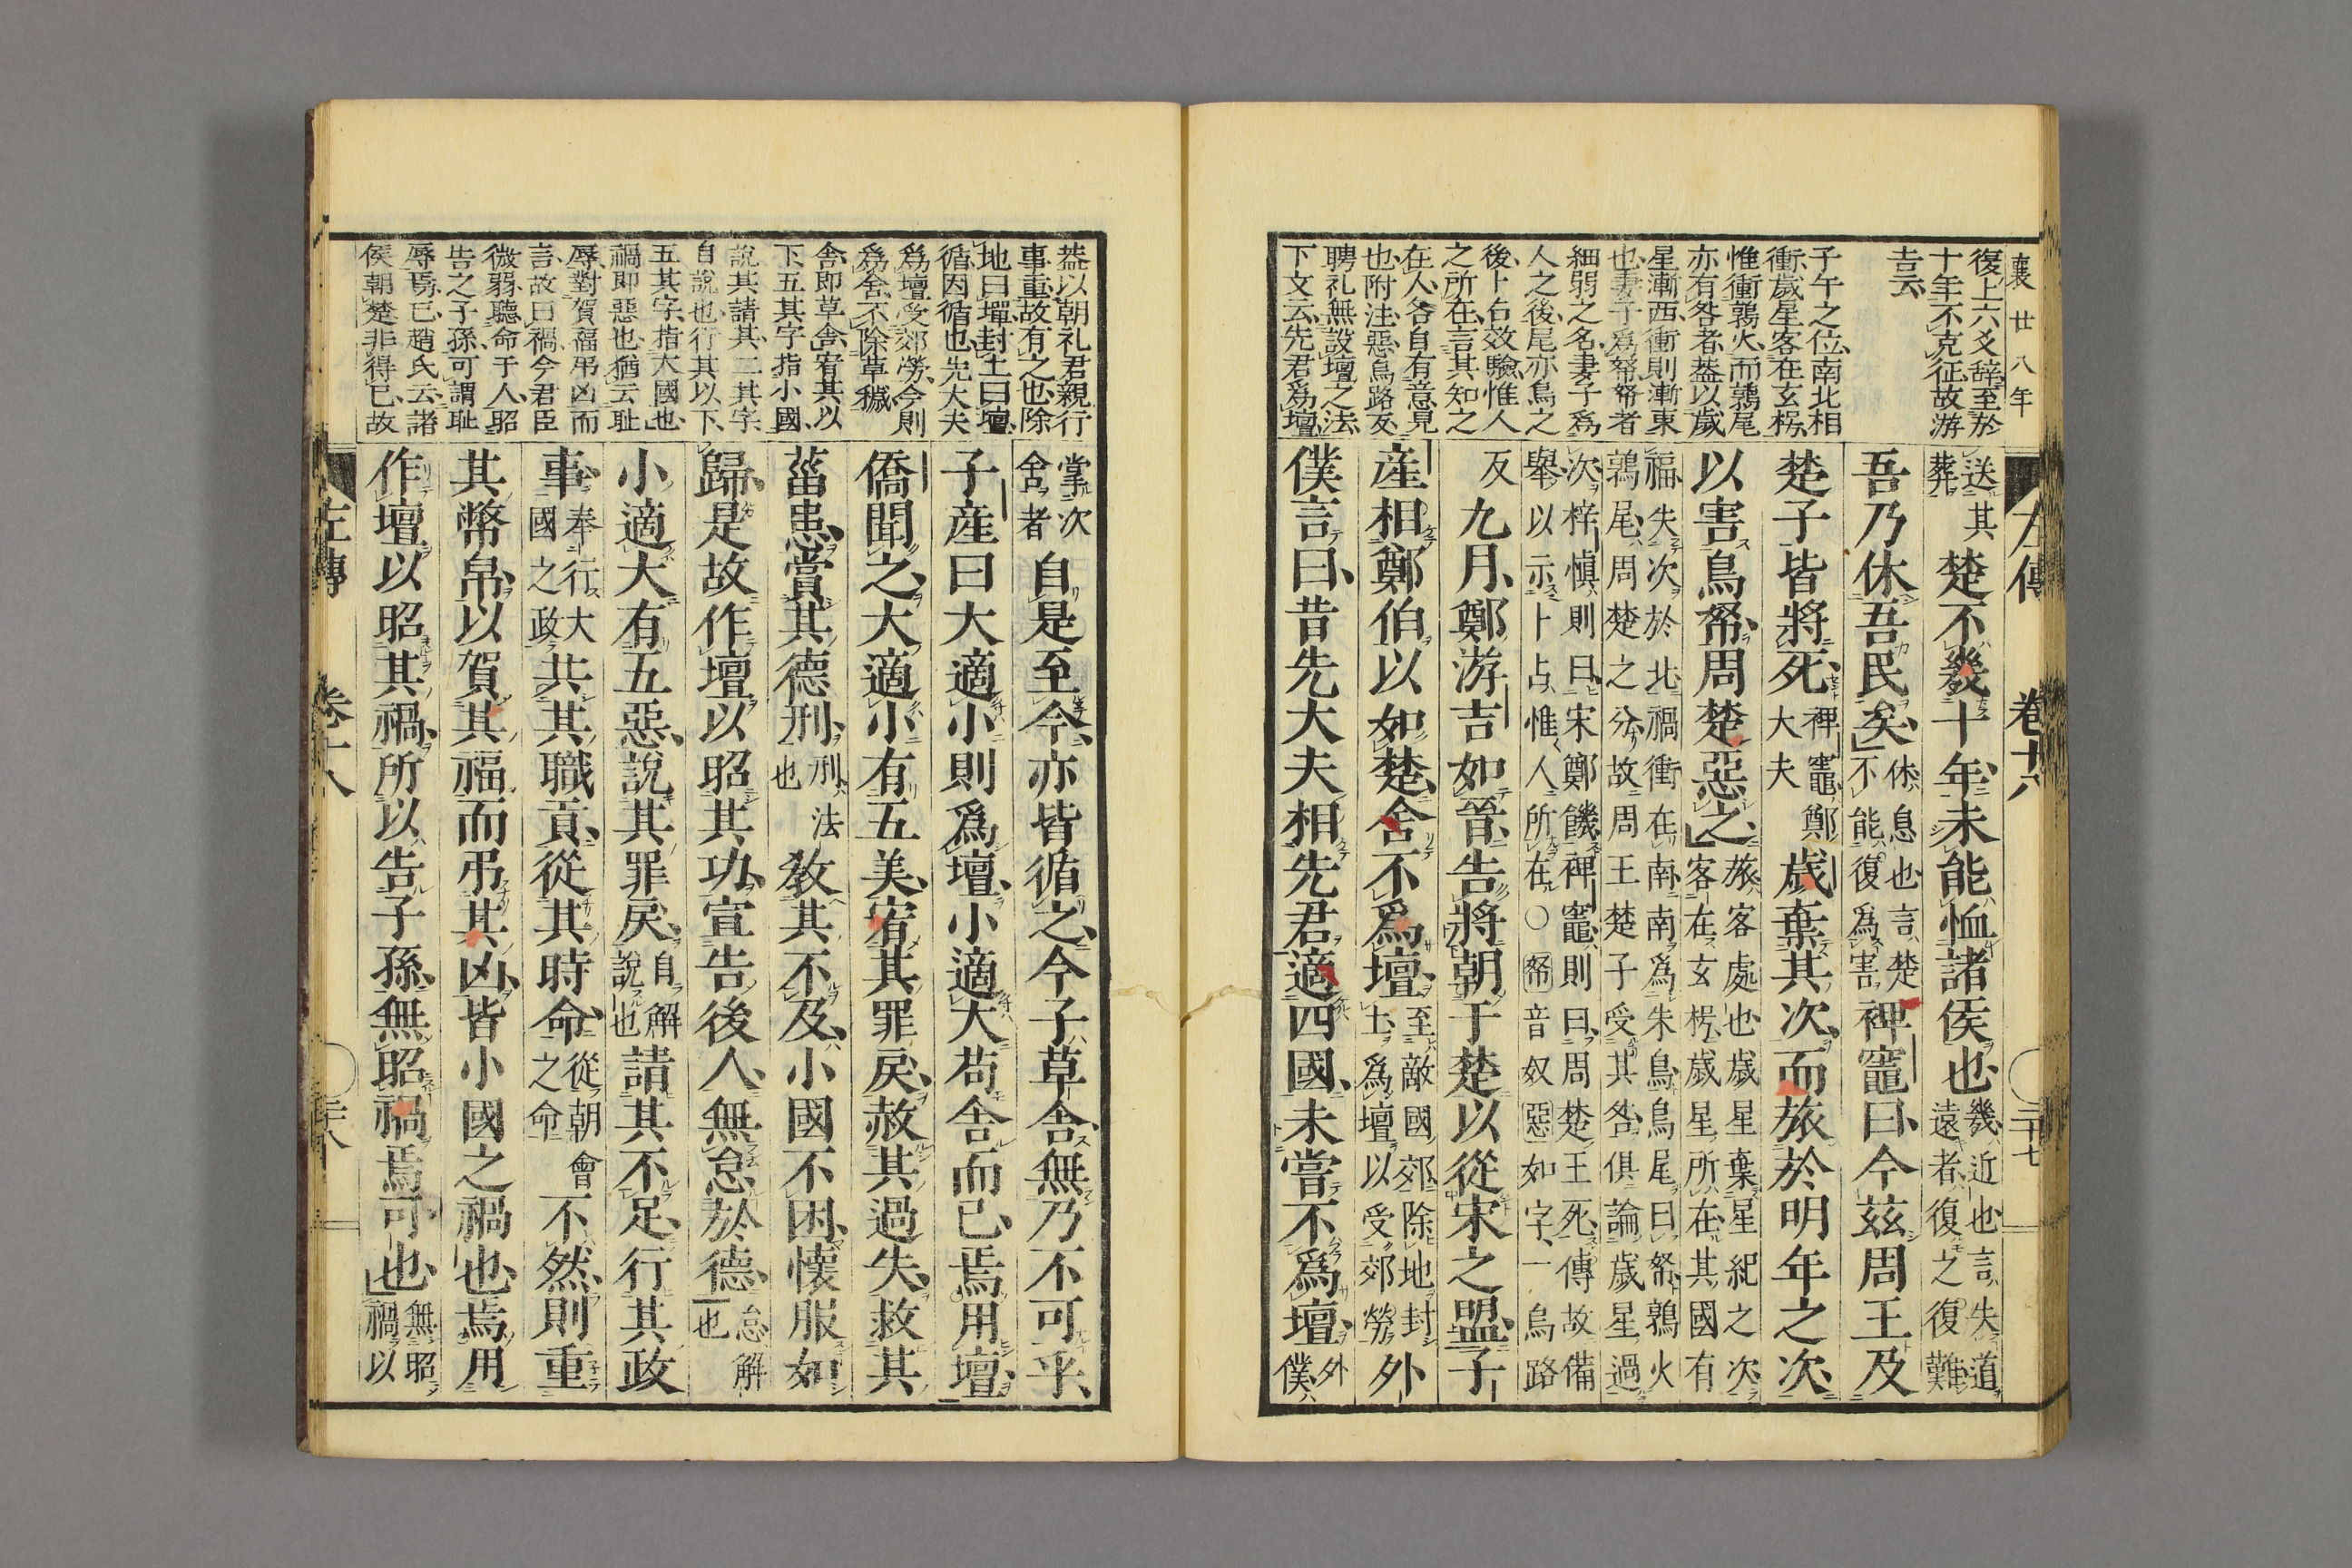 襄廿八年
復上六爻辭至於
十年不克征故游
吉云
子午之位南北相
衝歲星客在玄枵
惟衝鶉火而鶉尾
亦有咎者葢以歲
星漸西衝則漸東
也妻子爲帑帑者
細弱之名妻子爲
人之後尾亦鳥之
後卜右效驗惟人
之所在言其知之
在人各自有意見
也附注惡烏路反
聘礼無設壇之法
下文云先君爲壇
左傳 卷十八 二十七
送其
葬
楚不幾十年未能恤諸侯也
幾近也言失道
遠者復之復難
吾乃休吾民矣
休息也言楚
不能復爲害
裨竈曰今茲周王及
楚子皆將死
裨竈鄭
大夫
歲棄其次而旅於明年之次
以害鳥帑周楚惡之
旅客處也歲星棄星紀之次
客在玄枵歲星所在其國有
福失次於北禍衝在南南爲朱鳥鳥尾曰帑鶉火
鶉尾周楚之分故周王楚子受其咎俱論歲星過
次梓慎則曰宋鄭饑裨竈則曰周楚王死傳故備
舉以示卜占惟人所在○帑音奴惡如字一烏路
反
九月鄭游吉如晉告將朝于楚以從宋之盟子
産相鄭伯以如楚舍不爲壇
至敵國郊除地封
土爲壇以受郊勞
外
僕言曰昔先大夫相先君適四國未嘗不爲壇
外
僕
葢以朝礼君親行
事重故有之也除
地曰墠封土曰壇
循因循也先大夫
爲壇受郊勞今則
爲舍不除草穢
舍即草舍宥其以
下五其字指小國
說其請其二其字
自說也行其以下
五其字指大國也
禍即惡也猶云耻
辱對賀福弔凶而
言故曰禍今君臣
微弱聽命于人昭
告之子孫可謂耻
辱焉已趙氏云諸
侯朝楚非得已故
掌次
舍者
自是至今亦皆循之今子草舍無乃不可乎
子産曰大適小則爲壇小適大苟舍而已焉用壇
僑聞之大適小有五美宥其罪戾赦其過失救其
菑患賞其德刑
刑法
也
教其不及小國不困懷服如
歸是故作壇以昭其功宣告後人無怠於德
怠解
也
小適大有五惡說其罪戾
自解
說也
請其不足行其政
事
奉行大
國之政
共其職貢從其時命
從朝會
之命
不然則重
其幣帛以賀其福而弔其凶皆小國之禍也焉用
作壇以昭其禍所以告子孫無昭禍焉可也
無昭
禍以
左傳 卷十八 二十八